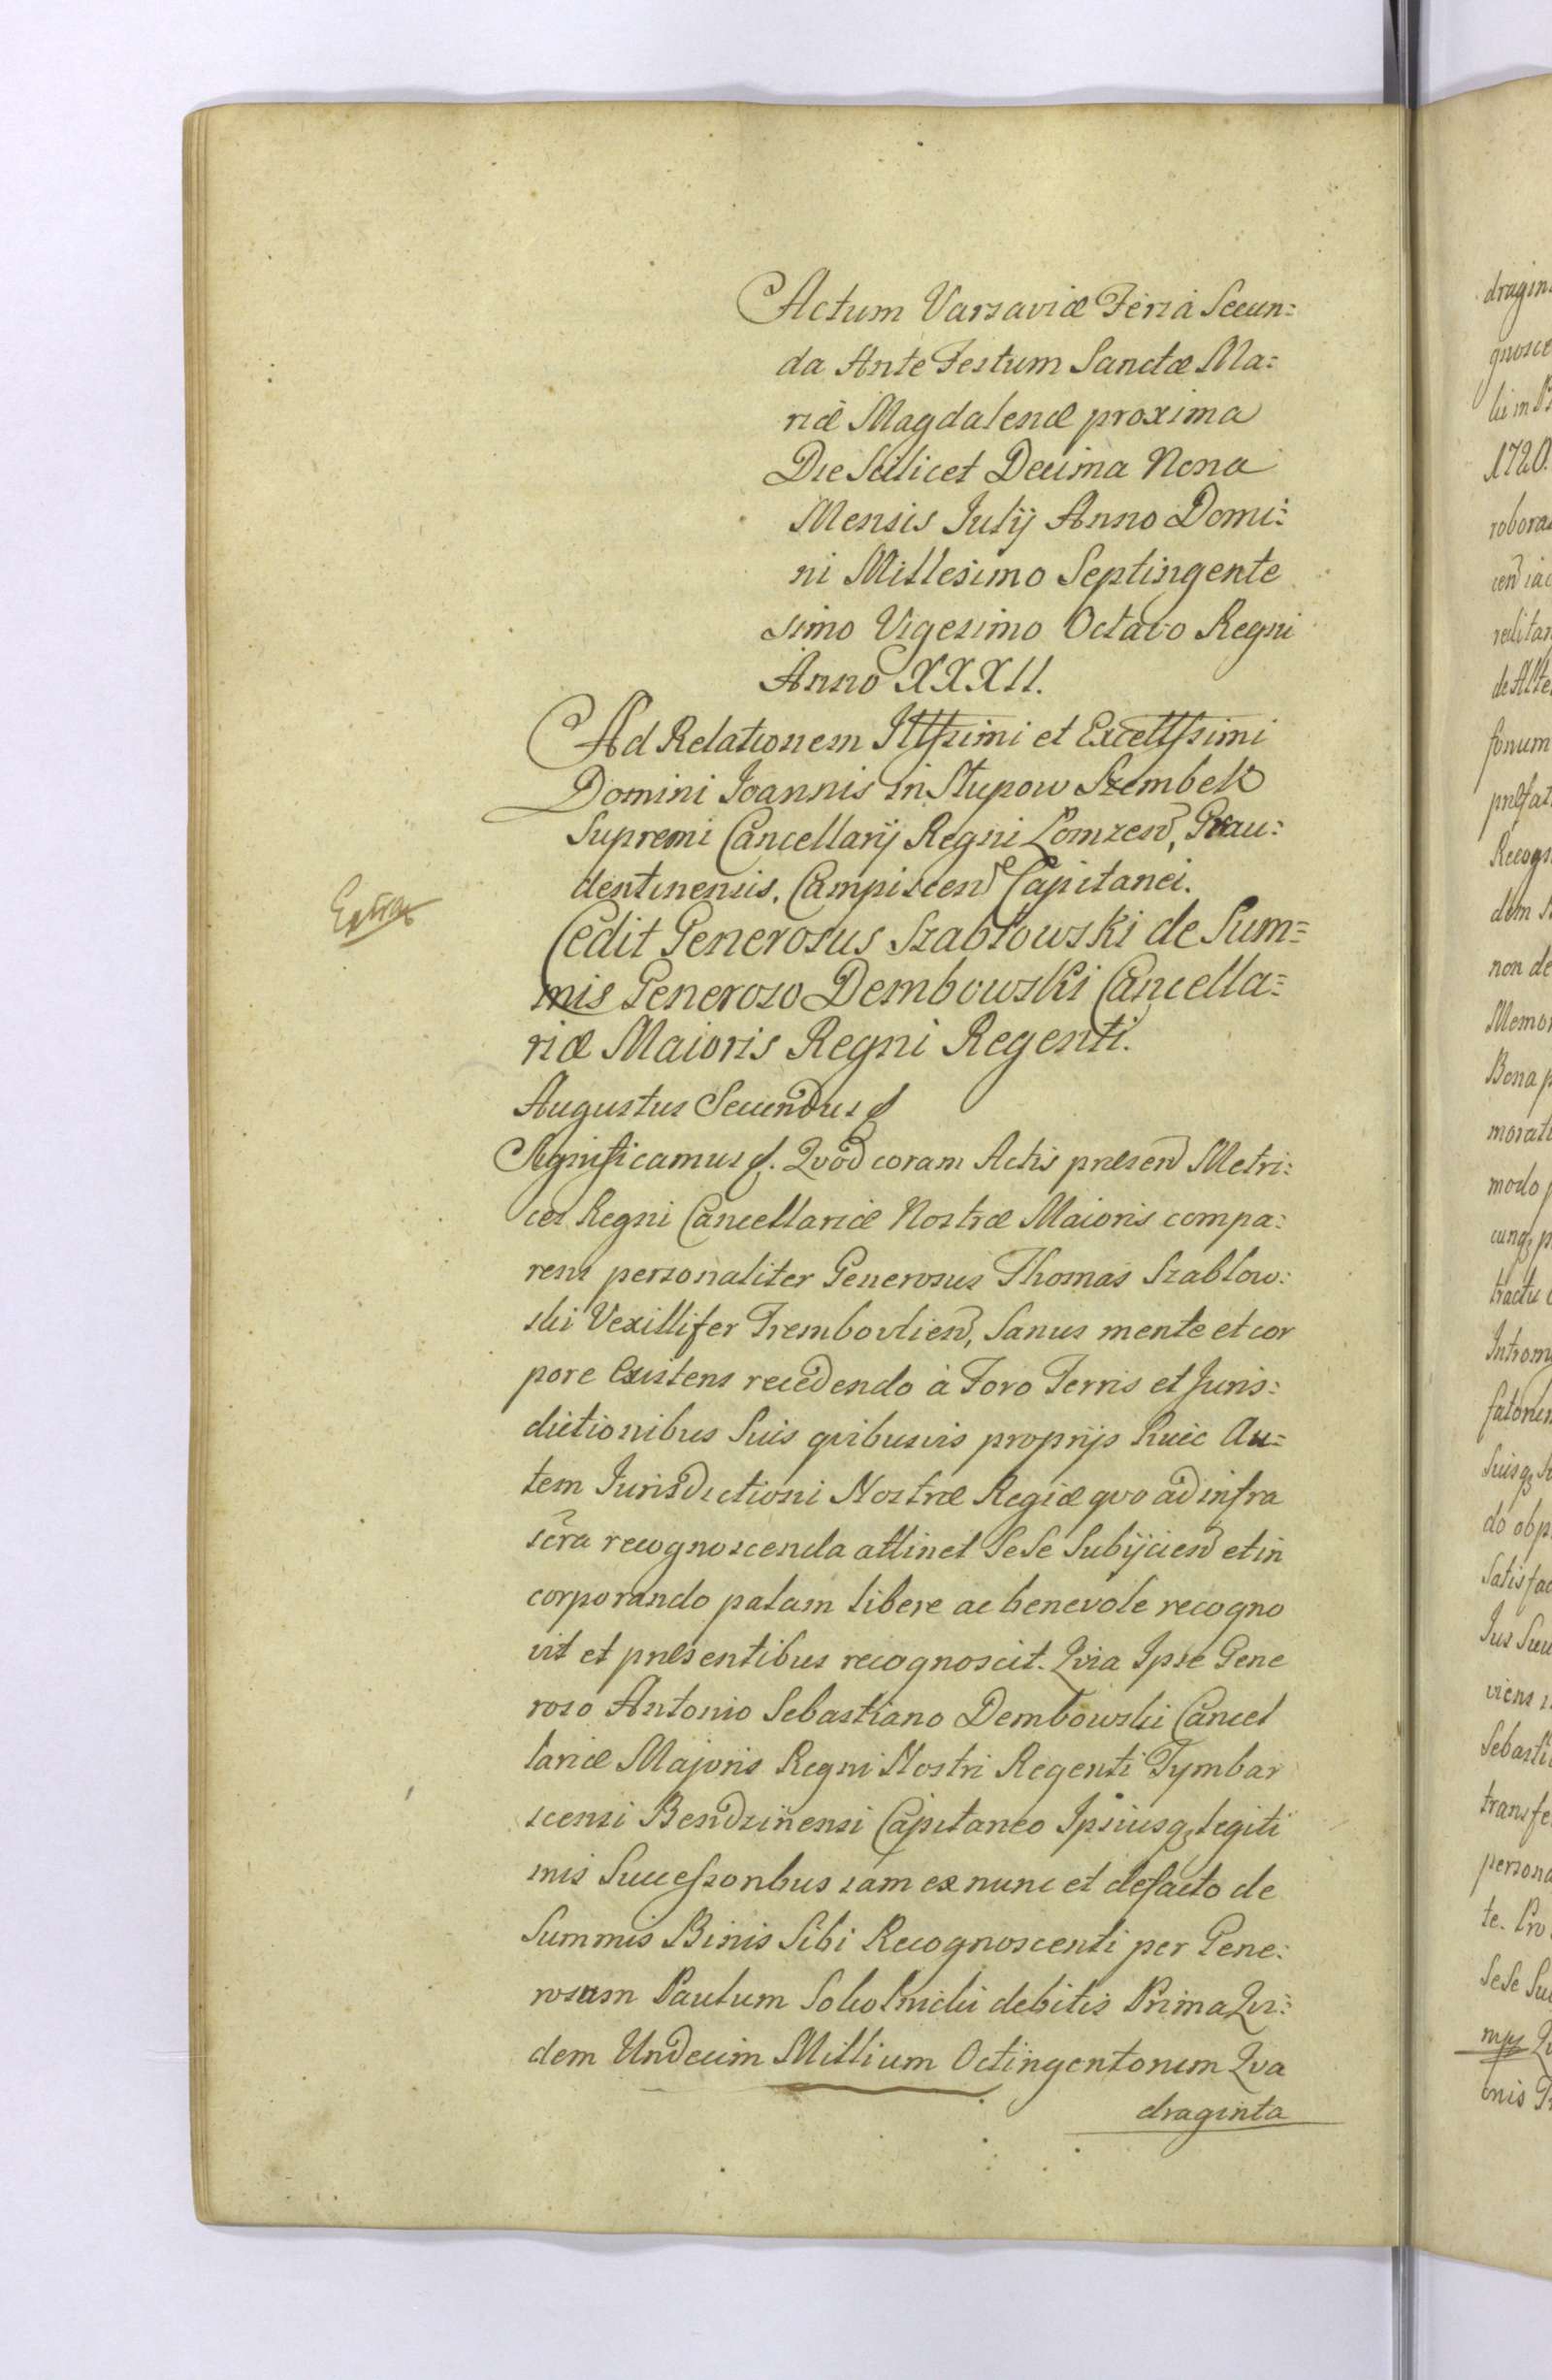 Actum Varsaviæ Feria Secun=
da Ante Festum Sanctæ Ma=
riæ Magdalenæ proxima
Die Scilicet Decima Nona
Mensis Julij Anno Domi=
ni Millesimo Septingente
simo Vigesimo Octavo Regni
Anno XXXII.
Ad Relationem Illssimi et Excellssimi
Domini Joannis in Słupow Szembek
Supremi Cancellarij Regni Lomzen, Grau=
dentinensis, Campiscen Capitanei.
Extra
Cedit Generosus Szabłowski de Sum=
mis Generoso Dembowski Cancella=
riæ Maioris Regni Regenti.
Augustus Secundus
Significamus. Qvod coram Actis præsen Metri=
ces Regni Cancellariæ Nostræ Maioris compa=
rens personaliter Generosus Thomas Szablow=
ski Vexillifer Trembovlien, Sanus mente et cor
pore Existens recedendo à Foro Terris et Juris=
dictionibus Suis qvibusvis proprijs huic Au=
tem Jurisdictioni Nostræ Regiæ qvo ad infra
scra recognoscenda attinet Sese Subijcien et in
corporando palam libere ac benevole recogno
vit et præsentibus recognoscit. Qvia Ipse Gene
roso Antonio Sebastiano Dembowski Cancel
lariæ Majoris Regni Nostri Regenti Tymbar
scensi Bendzinensi Capitaneo Ipsiusq legiti
mis Successoribus iam ex nunc et defacto de
Summis Binis Sibi Recognoscenti per Gene=
rosum Paulum Sokolnicki debitis Prima Qvi=
dem Undecim Millium Octingentorum Qva
draginta
dragin
gnosce
1720.
robora
fonum
præfat
Recogn
dem
non de
Memor
Bona p
morati
modo p
cunq p
tractu
Introm
do obp
Satisfac
viens
Sebasti
transfe
persona
te. Pro
Sese Su
onis